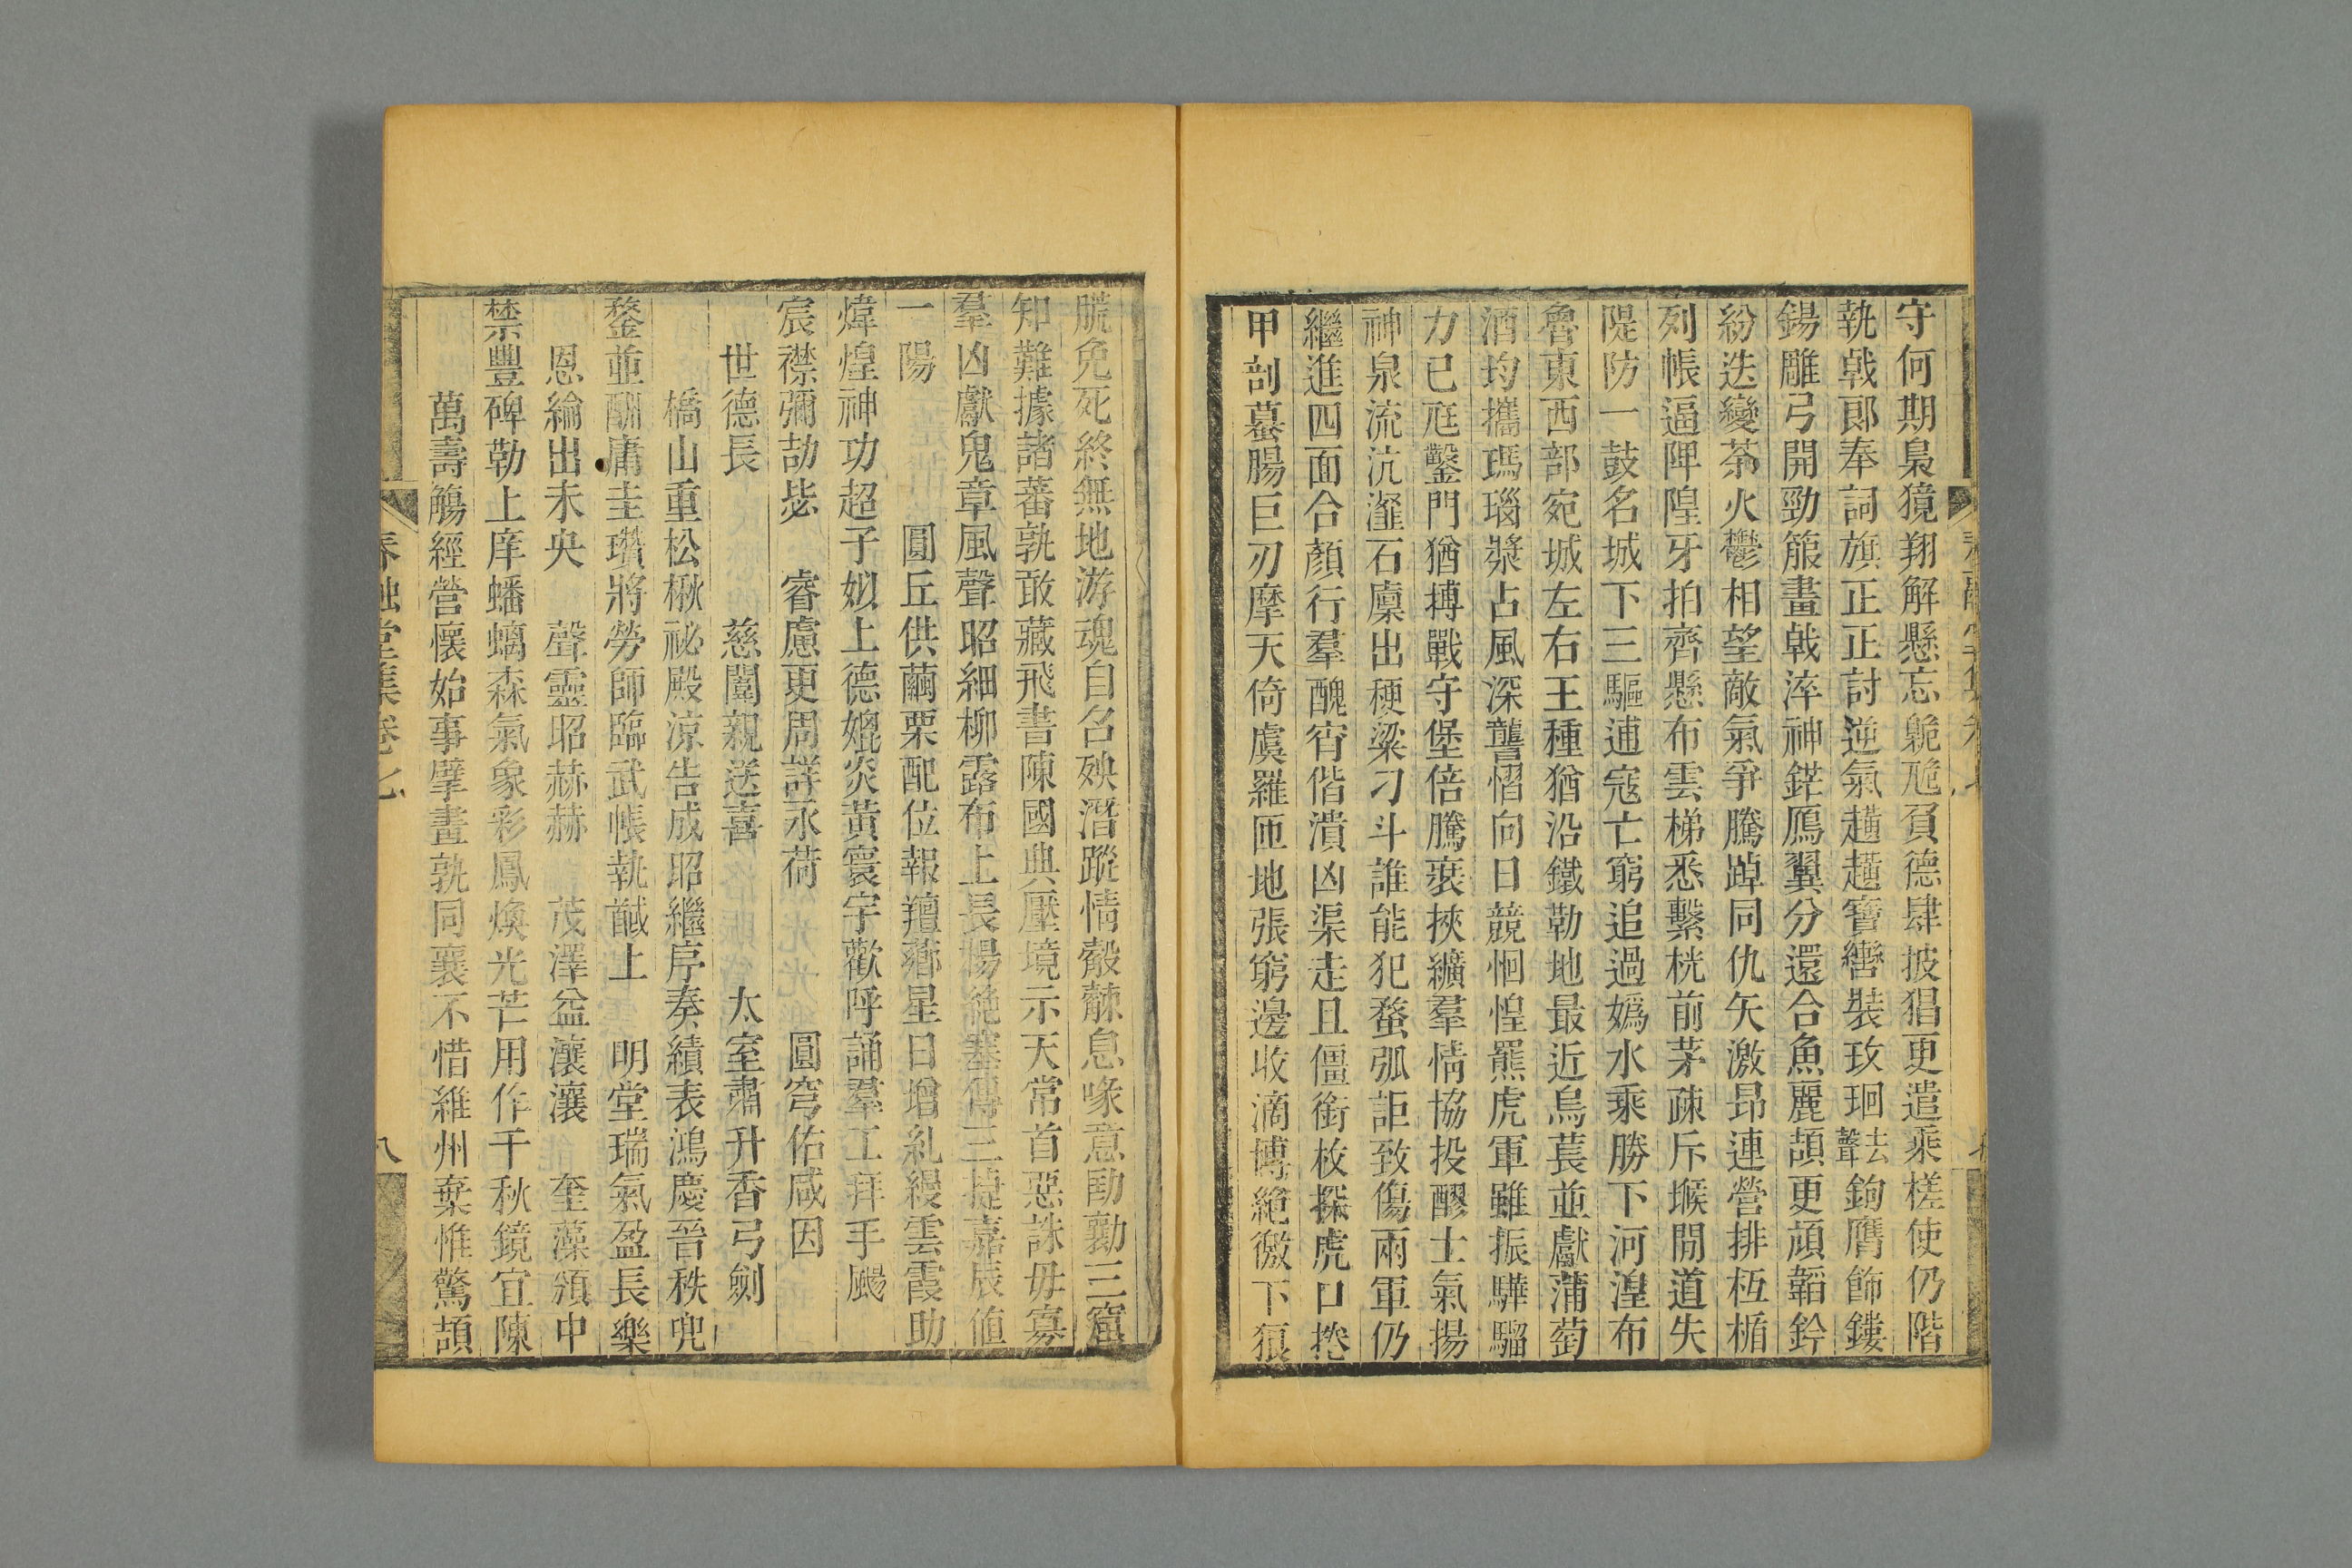 守何期梟獍翔解懸忘臲卼負德肆披猖更遣乘槎使仍階
執戟郎奉詞旗正正討逆氣趪趪寶轡裝玫珮鼞去鉤膺飾鏤
鍚雕弓開勁箙畫戟淬神鋩鴈翼分還合魚麗頡更頏韜鈐
紛迭變荼火鬱相望敵氣爭騰踔同仇矢激昂連營排枑楯
列帳逼陴隍牙拍齊懸布雲梯悉繫桄前茅疎斥堠閒道失
隄防一鼓名城下三驅逋寇亡窮追過媯水乘勝下河湟布
魯東西部宛城左右王種猶沿鐵勒地最近烏萇並獻蒲萄
酒均攜瑪瑙漿占風深讋慴向日競恛惶羆虎軍雖振驊騮
力已尫鑿門猶搏戰守堡倍騰裝挾纊羣情協投醪士氣揚
神泉流沆瀣石廩出稉粱刁斗誰能犯蝥弧詎致傷兩軍仍
繼進四面合顏行羣醜宵偕潰凶渠走且僵銜枚探虎口捲
甲剖蟇腸巨刃摩天倚虞羅匝地張窮邊收滴博絕徼下狼
䏆免死終無地游魂自召殃潛蹤情觳觫息喙意劻勷三窟
知難據諸蕃孰敢藏飛書陳國典壓境示天常首惡誅毋寡
羣凶獻鬼章風聲昭細柳露布上長楊絕塞傳三捷嘉辰値
一陽圓丘供繭栗配位報羶薌星日增糺縵雲霞助
煒煌神功超子姒上德媲炎黃寰宇歡呼誦羣工拜手颺
宸襟彌劼毖睿慮更周詳永荷圓穹佑咸因
世德長慈闈親送喜太室肅升香弓劍
橋山重松楸祕殿涼告成昭繼序奏績表鴻慶晉秩兜
鍪並酬庸圭瓚將勞師臨武帳執馘上明堂瑞氣盈長樂
恩綸出未央聲靈昭赫赫茂澤益瀼瀼奎藻頒中
禁豐碑勒上庠蟠螭森氣象彩鳳煥光芒用作千秋鏡宜陳
萬壽觴經營懷始事擘畫孰同襄不惜維州棄惟驚頡
春融堂集卷七
八